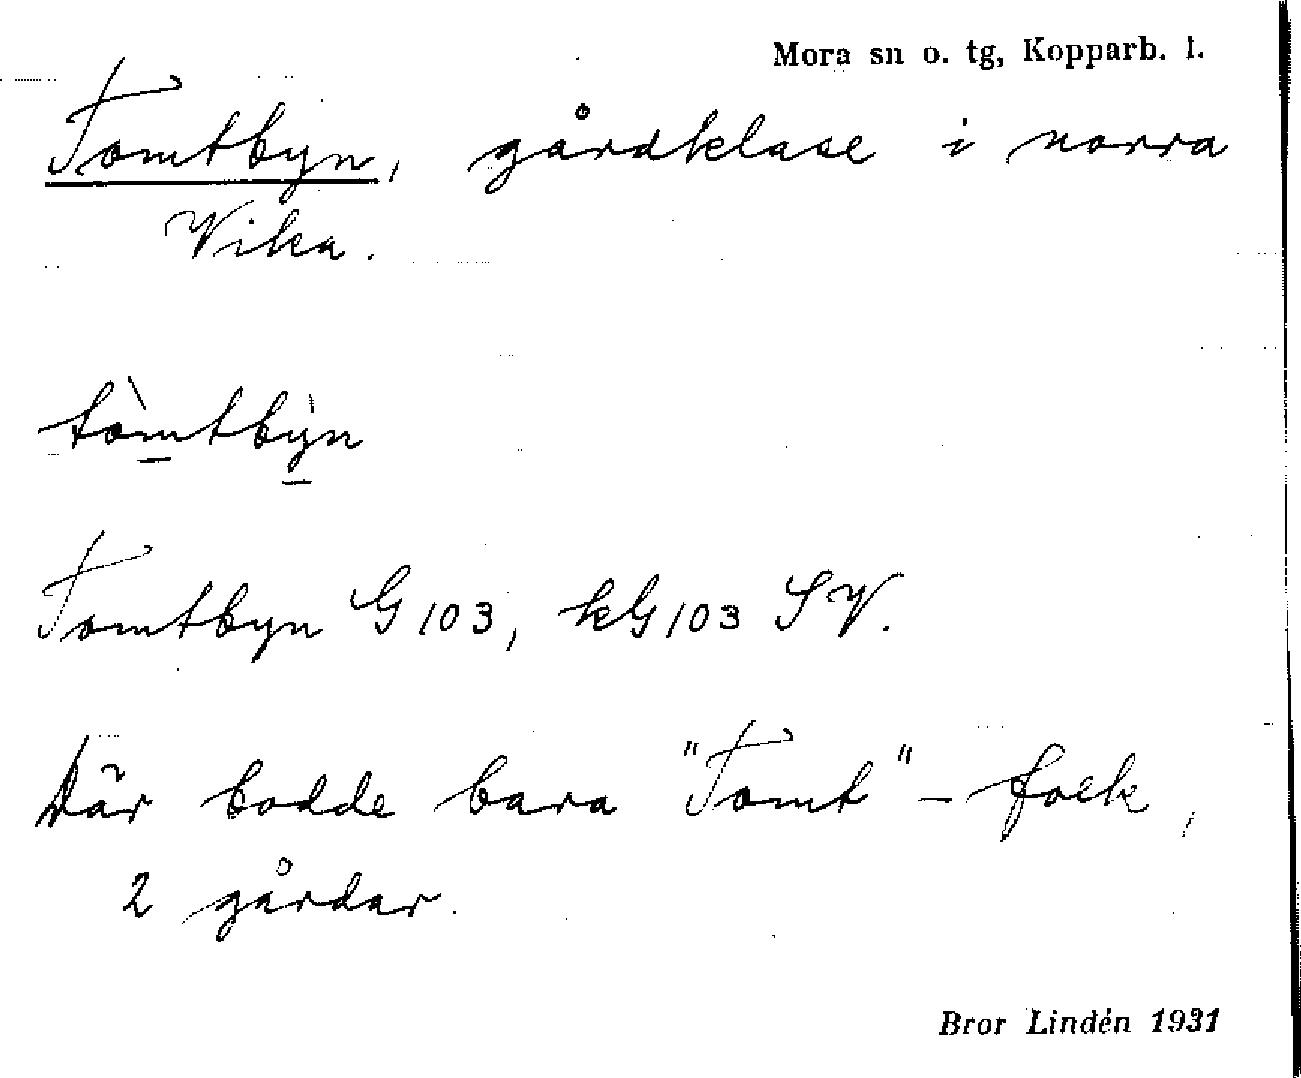 Mora sn o. tg, Kopparb. l.
Tomtbyn, gårdklase i norra
Vika.
tòmtbỳn
Tomtbyn G103, kG103 SV.
Där bodde bara "Tomt"-folk,
2 gårdar.
Bror Lindén 1931